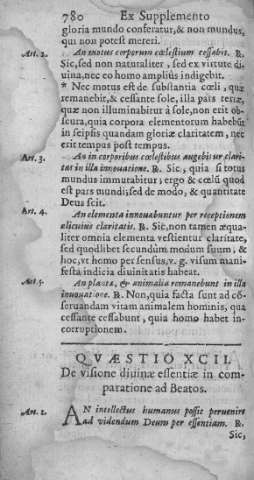 780 Ex Supplemento
gloria mundo conferatur, & non mundus,
qui non potest mereri.
Art. 2. An motus corporum cœlestium cessabit. R.
Sic, sed non naturaliter, sed ex virtute di
uina, nec eo homo amplius indigebit.
* Nec motus est de substantia cœli, quæ
remanebit, & cessante sole, illa pars terræ,
quæ non illuminabitur à sole, non erit ob-
scura, quia corpora elementorum habebũt
in seipsis quandam gloriæ claritatem, nec
erit tempus post tempus.
Art. 3. An in corporibus cœlestibus augebitur clari
tas in illa innouatione. R. Sic, quia si totus
mundus immutabitur, ergo & cœlũ quod
est pars mundi, sed de modo, & quantitate
Deus scit.
Art. 4. An elementa innouabuntur per receptionem
alicuius claritatis. R. Sic, non tamen æqua-
liter omnia elementa vestientur claritate,
sed quodlibet secundùm modum suum, &
hoc, vt homo per sensus, v. g. visum mani-
festa indicia diuinitatis habeat.
Art. 5. An planta, & animalia remanebunt in illa
inuouatione. R. Non, quia facta sunt ad cõ-
seruandam vitam animalem hominis, qua
cessante cessabunt, quia homo habet in-
corruptionem.
QVÆSTIO XCII.
De visione diuinæ essentiæ in com-
paratione ad Beatos.
Art. 1. AN intellectus humanus possit peruenire
ad videndum Deum per essentiam. R.
Sic,